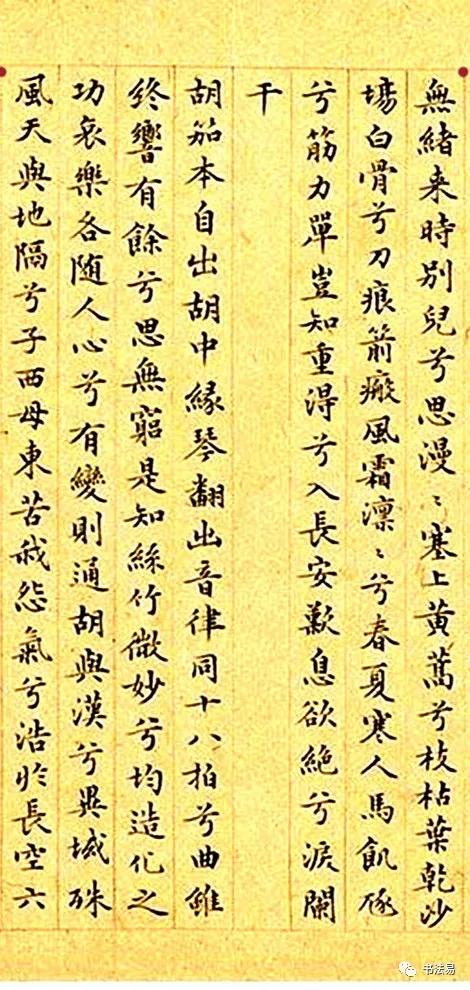 無緒来時別兒兮思漫〻塞上黃蒿兮枝枯葉乾沙
場白骨兮刀痕箭瘢風霜凜〻兮春夏寒人馬飢豗
兮筋力單豈知重得兮入長安歎息欲絕兮淚闌
干
胡笳本自出胡中緣琴翻出音律同十八拍兮曲雖
終響有餘兮思無窮是知絲竹微妙兮均造化之
功哀樂各隨人心兮有變則通胡與漢兮異域殊
風天與地隔兮子西母東苦我怨氣兮浩於長空六
书法易